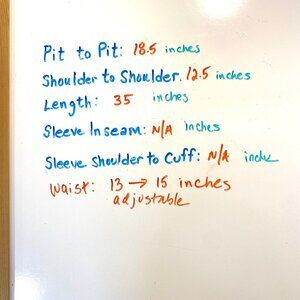 Pit to Pit: 18.5 inches
Shoulder to Shoulder. 12.5 inches
Length: 35 inches
Sleeve Inseam: N/A inches
Sleeve Shoulder to Cuff: N/A inche
Waist: 13 → 15 inches
adjustable